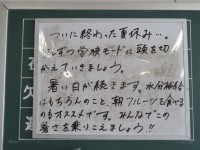 ついに終わった夏休み…。
少しずつ学校モードに頭を切
りかえていきましょう。
暑い日が続きます。水分補給
はもちろんのこと、朝フルーツを食べる
のもオススメです。みんなでこの
暑さを乗りこえましょう!!